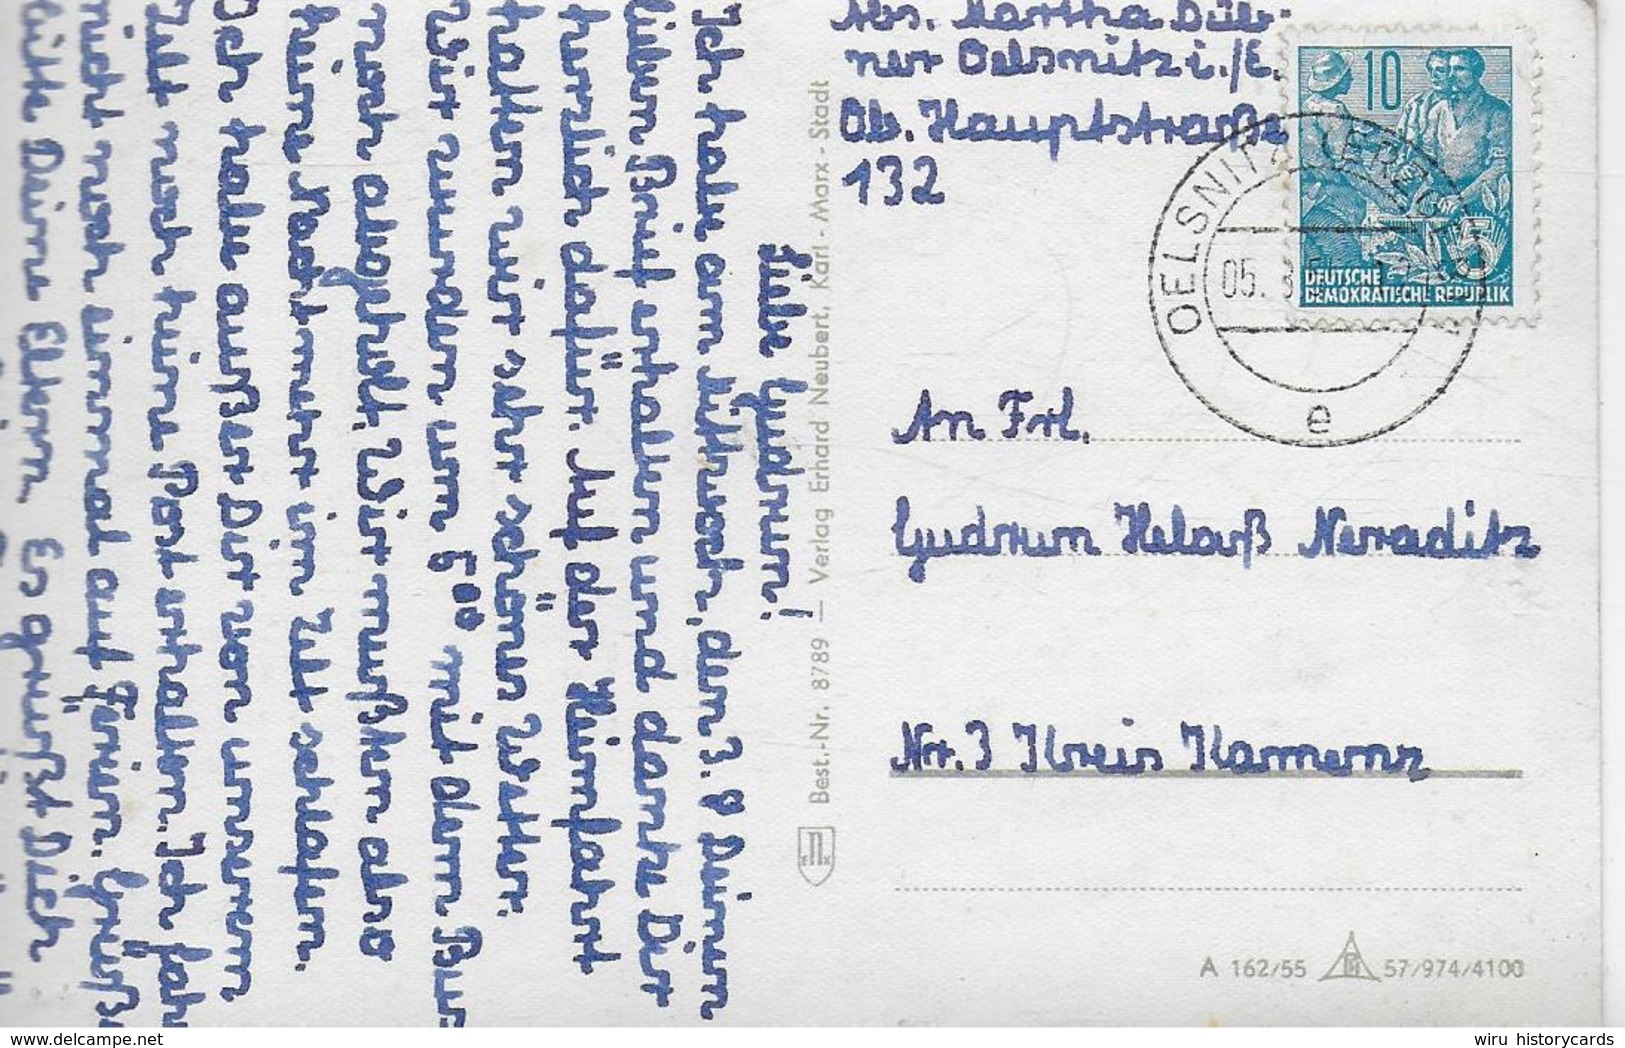 Abs. Martha Düb-
ner Oelsnitz i./E.
Ob. Hauptstraße
132
10
5
DEUTSCHE
DEMOKRATISCHE REPUBLIK
OELSNITZ (ERZGEB)
05. 8
e
An Frl.
Gudrun Helaß Neraditz
Nr. 3 Kreis Kamenz
A 162/55
57/974/4100
Best.-Nr. 8789 — Verlag Erhard Neubert, Karl-Marx-Stadt
Liebe Gudrun!
Ich habe am Mittwoch, den 3. 8 Deinen
lieben Brief erhalten und danke Dir
herzlich dafür. Auf der Heimfahrt
hatten wir sehr schönes Wetter.
Wir wurden um 5⁰⁰ mit dem Bus
noch abgeholt. Wir mußten also
keine Nacht mehr im Zelt schlafen.
Ich habe außer Dir von unserem
Zelt noch keine Post erhalten. Ich fahre
nicht noch einmal auf Ferien. Grüße
bitte Deine Eltern. Es grüßt Dich
wiru historycards
www.delcampe.net